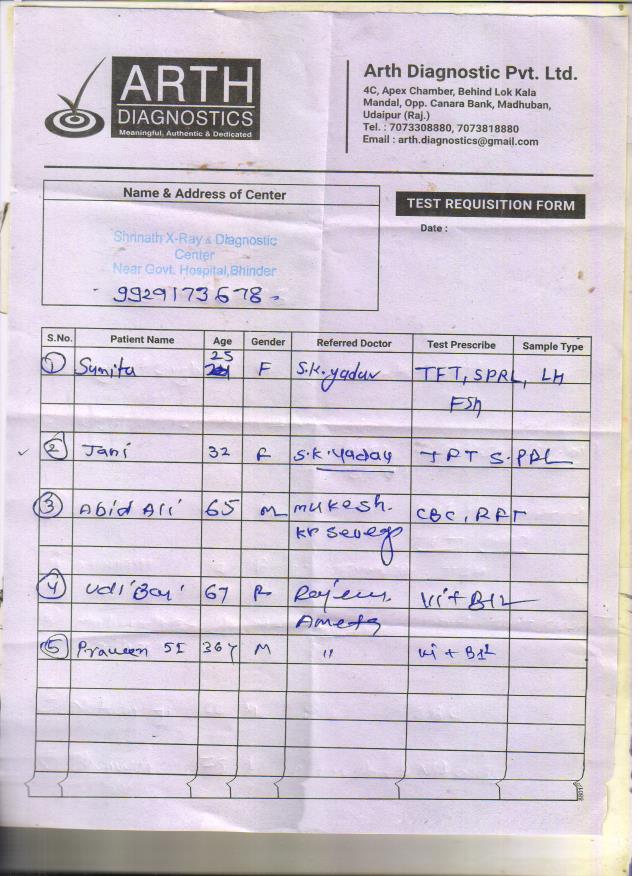 ARTH
DIAGNOSTICS
Meaningful, Authentic & Dedicated
Arth Diagnostic Pvt. Ltd.
4C, Apex Chamber, Behind Lok Kala
Mandal, Opp. Canara Bank, Madhuban,
Udaipur (Raj.)
Tel. : 7073308880, 7073818880
Email : arth.diagnostics@gmail.com
Name & Address of Center
TEST REQUISITION FORM
Date :
Shrinath X-Ray & Diagnostic
Center
Near Govt. Hospital, Bhinder
9929173678
S.No. Patient Name Age Gender Referred Doctor Test Prescribe Sample Type
1 Sunita 25 F S.K. yadav TFT, SPRL, LH
FSH
2 Jani 32 F S.K. yadav TFT S.PRL
3 Abid Ali 65 M mukesh.
Kr
CBC, RFT
4 Udi Bai 67 F Vit B12
Ameta
5 Praveen 36 Y M " Vit B12